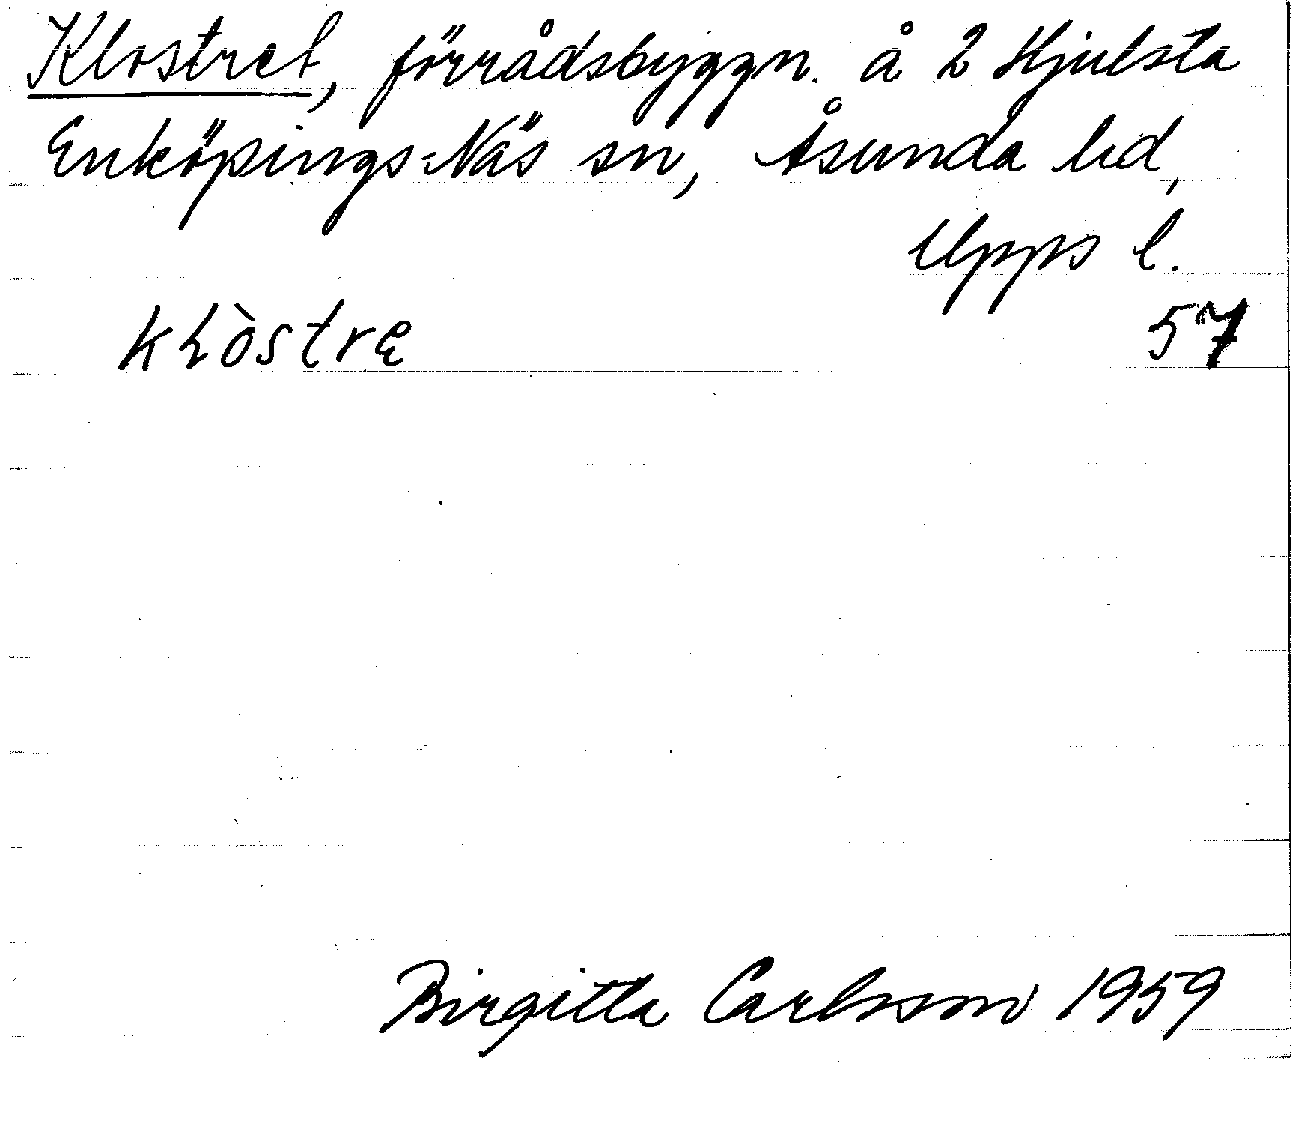 Klostret, förrådsbyggn. å 2 Hjulsta
Enköpings-Näs sn, Åsunda hd,
Upps l.
klòstrə 57
Birgitta Carlsson 1959